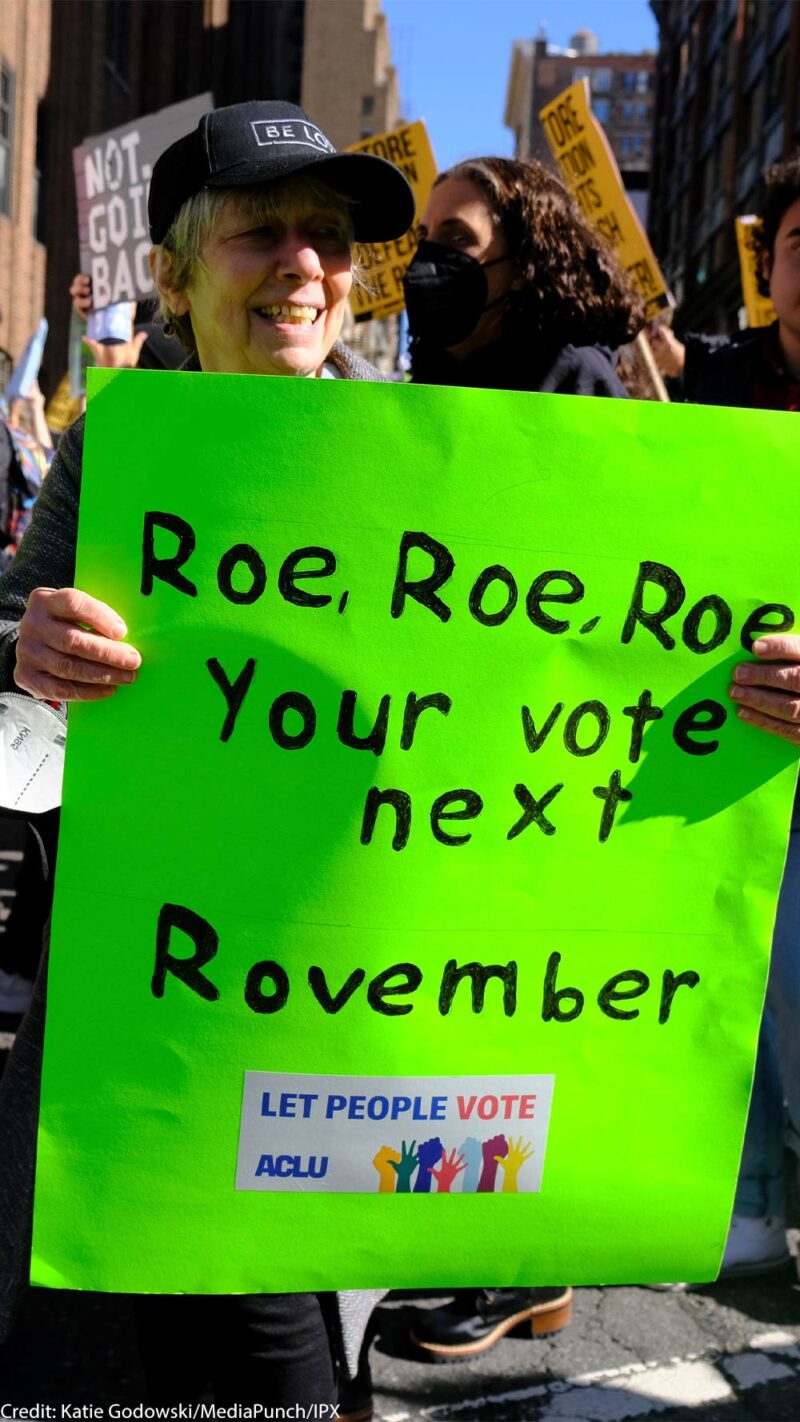 BE LO
NOT.
GOI
BAC
Roe, Roe, Roe
Your vote
next
Rovember
LET PEOPLE VOTE
ACLU
KN95
Credit: Katie Godowski/MediaPunch/IPX